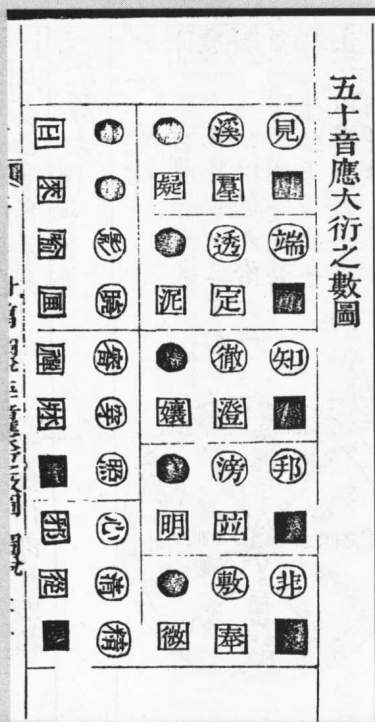 五十音應大衍之數圖
見 端 知 邦 非
溪 羣 透 定 徹 澄 滂 並 敷 奉
疑 泥 孃 明 微
影 曉 審 穿 照 心 清 精
日 來 喻 匣 禪 牀 邪 從